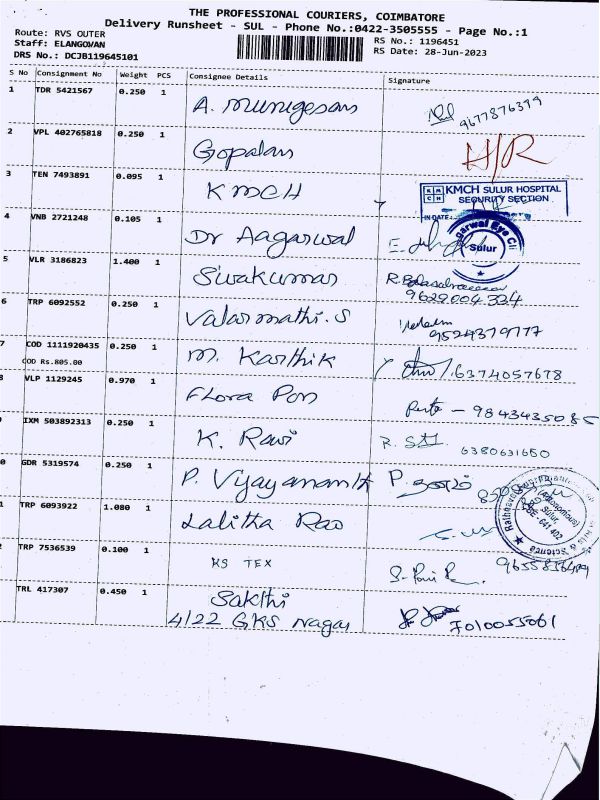 THE PROFESSIONAL COURIERS, COIMBATORE
Delivery Runsheet - SUL - Phone No.:0422-3505555 - Page No.:1
Route: RVS OUTER
RS No.: 1196451
Staff: ELANGOVAN
RS Date: 28-Jun-2023
DRS No.: DCJB119645101
S No Consignment No Weight PCS Consignee Details Signature
1 TDR 5421567 0.250 1 A. Murugesan 9677876379
2 VPL 402765818 0.250 1 Gopalan H/R
3 TEN 7493891 0.095 1 KMCH
KMCH SULUR HOSPITAL
SECURITY SECTION
IN DATE
4 VNB 2721248 0.105 1 Dr Aagarwal
garwal Eye Cli
Sulur
5 VLR 3186823 1.400 1 Sivakumar
9629004334
6 TRP 6092552 0.250 1 Valarmathi.S
9524379777
7 COD 1111920435 0.250 1 M. Karthik 6374057678
COD Rs.805.00
8 VLP 1129245 0.970 1 Flora Pon - 9843435085
IXM 503892313 0.250 1 K. Ravi 6380631650
0 GDR 5319574 0.250 1 P. Vijayananth P.
1 TRP 6093922 1.080 1 Lalitha Rao
Sulur,
641 402
& Science
2 TRP 7536539 0.100 1 KS TEX
TRL 417307 0.450 1 Sakthi
4/22 GKS Nagar 7010055061